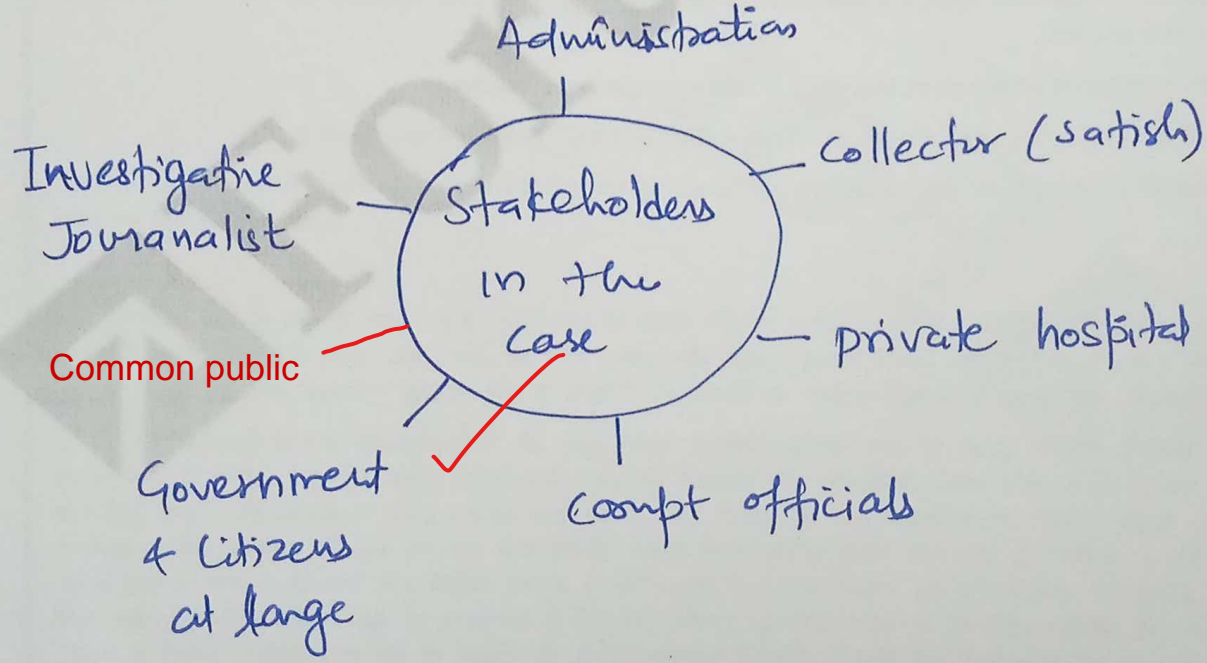 Administration
Collector (Satish)
Investigative
Jouranalist
Stakeholders
in the
case
private hospital
Common public
Government
& Citizens
at large
corrupt officials
For